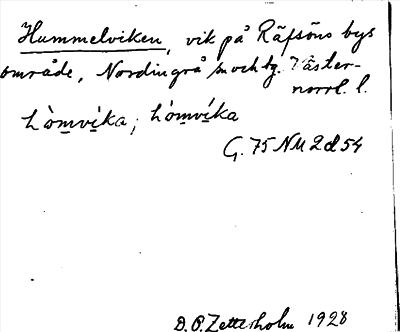 Hummelviken, vik på Räfsöns bys
område, Nordingrå sn och tg. Väster-
norrl. l.
hòmvíka, hòmvíka
G. 75 NU 2d 54
D. O. Zetterholm 1928